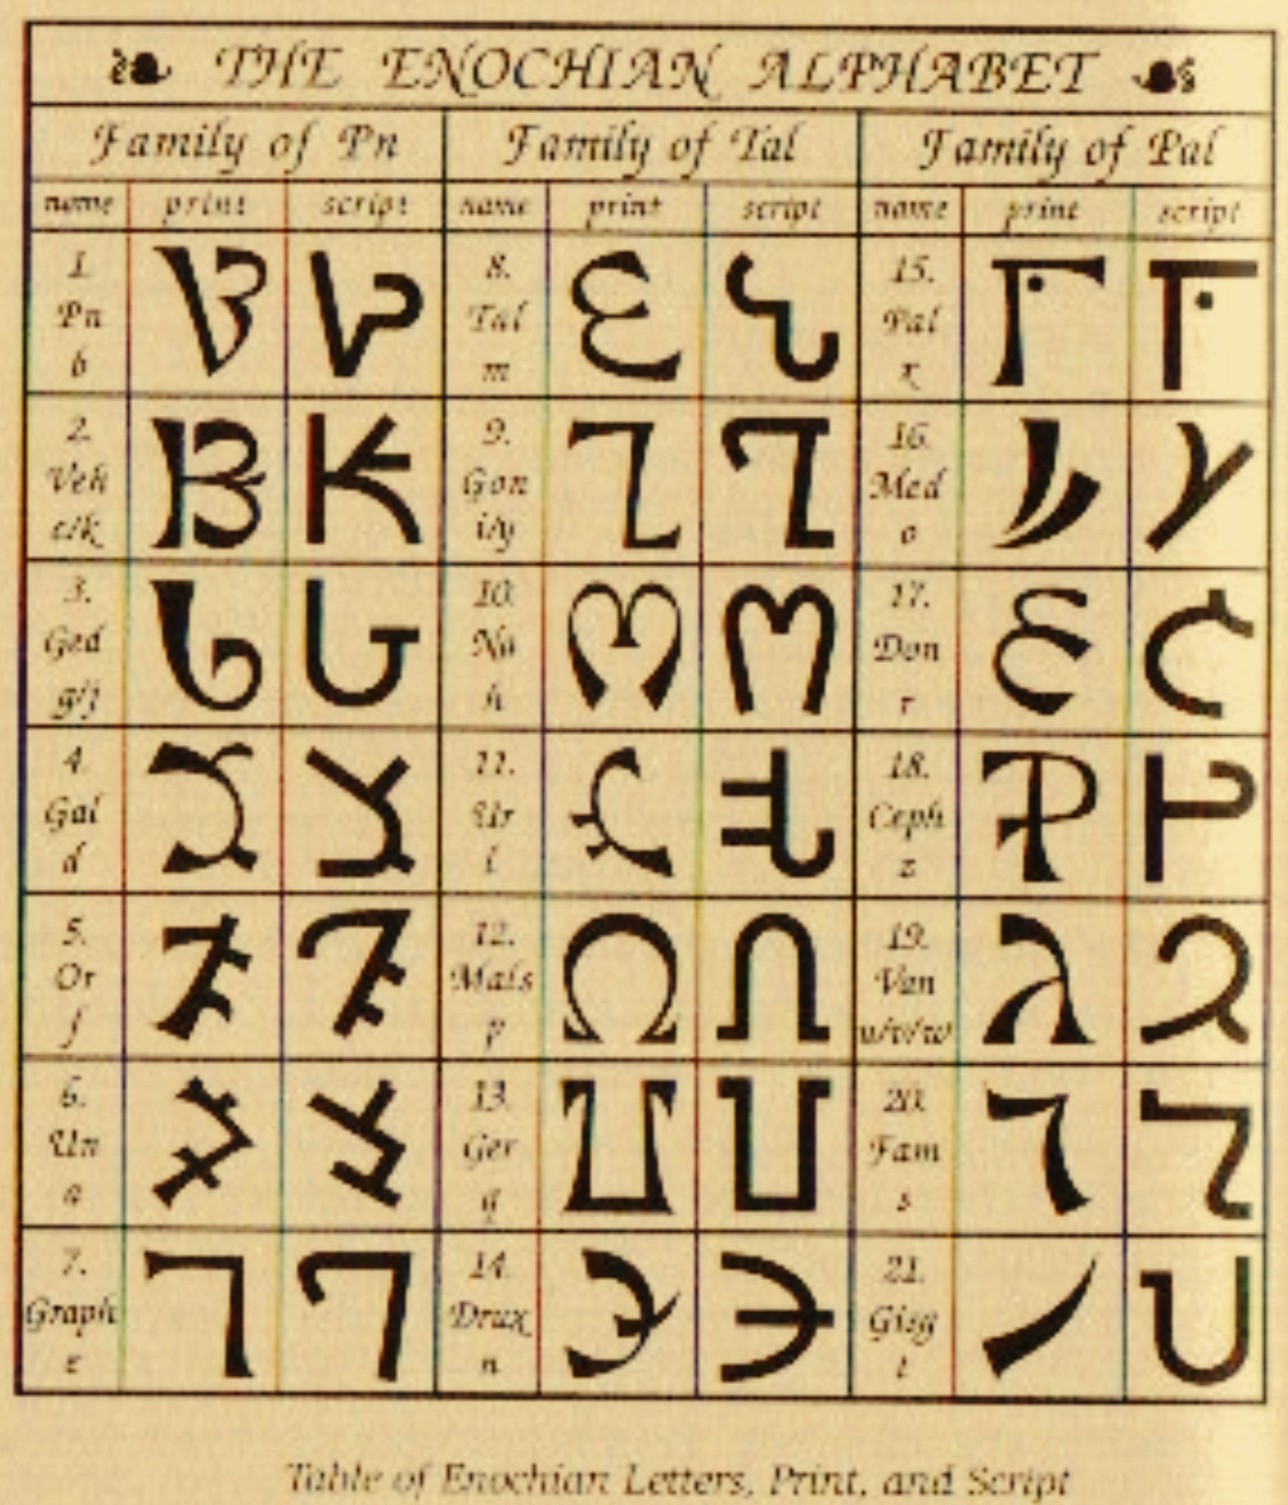 THE ENOCHIAN ALPHABET
Family of Pn Family of Tal Family of Pal
name print script name print script name print script
1. 8. 15.
Pn Tal Pal
b m x
2. 9. 16.
Veh Gon Med
c/k i/y o
3. 10. 17.
Ged Na Don
g/j h r
4. 11. 18.
Gal Ur Ceph
d l z
5. 12. 19.
Or Mals Van
f p u/v/w
6. 13. 20.
Un Ger Fam
a q s
7. 14. 21.
Graph Drux Gisg
e n t
Table of Enochian Letters, Print, and Script